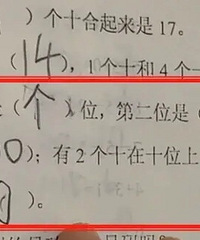 ）个十合起来是17。
（14），1个十和4个一
（个）位，第二位是（
0）；有2个十在十位上
）。